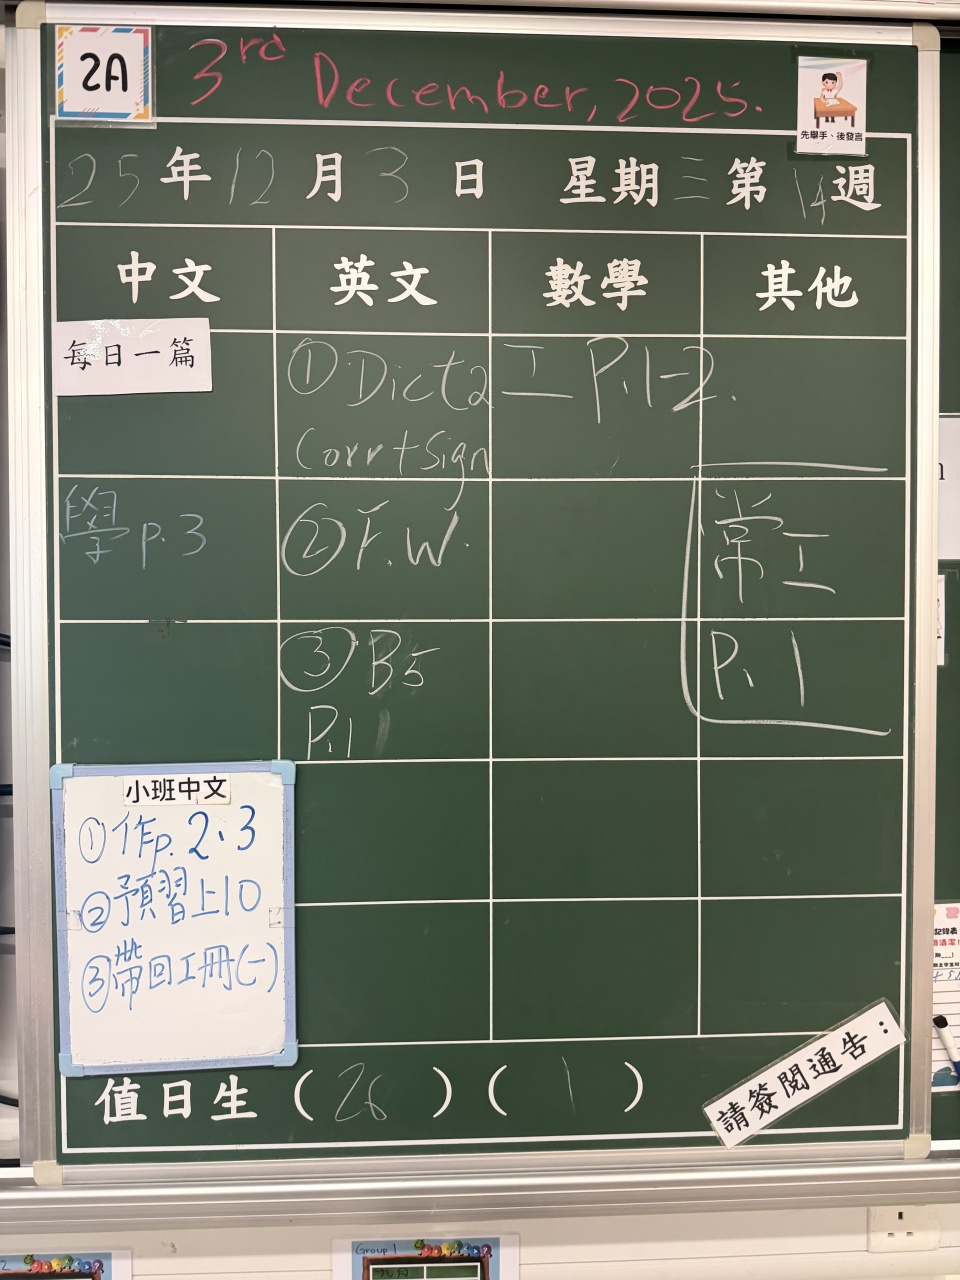 2A
3rd December, 2025.
先舉手、後發言
25年12月3日 星期三第14週
中文 英文 數學 其他
每日一篇
① Dict2
Corr + Sign
工 P.1-2.
學 p.3
② F.W.
常工
P.1
③ B5
P.1
小班中文
①作p.2、3
②預習上10
③帶回工冊(一)
值日生(26)(1)
請簽閱通告：
Group 1